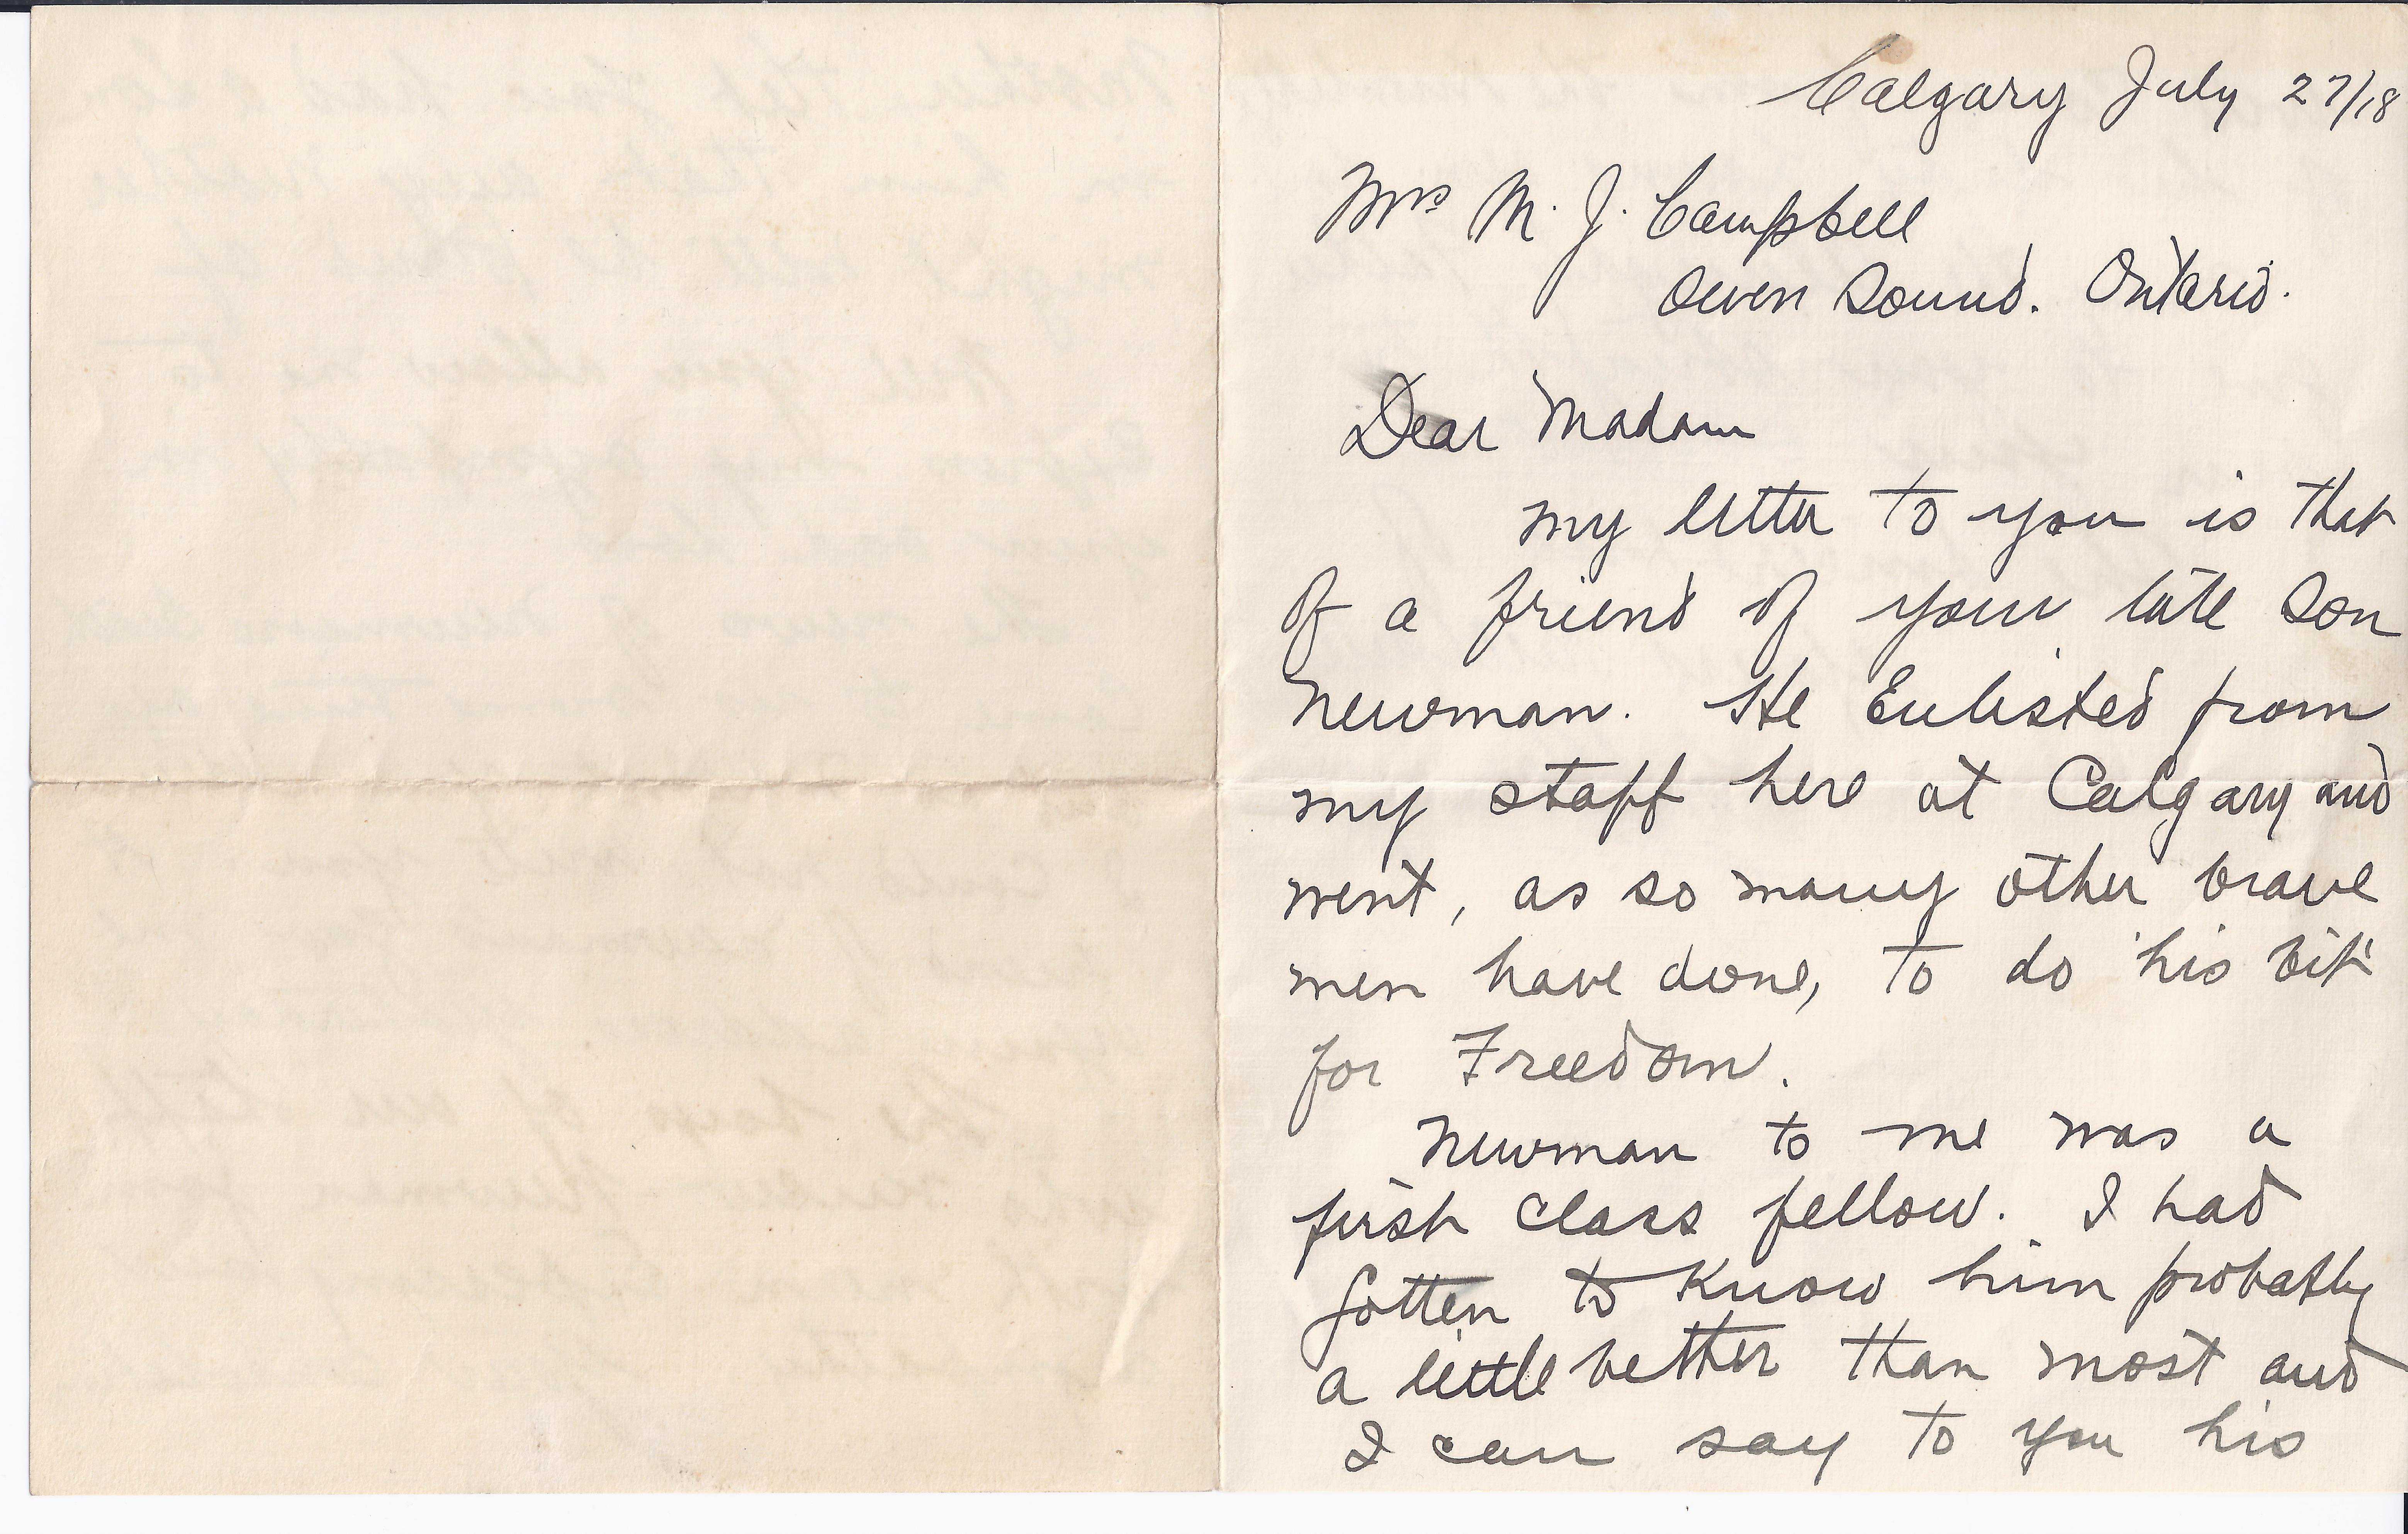 Calgary July 27/18
Mrs M. J. Campbell
Owen Sound. Ontario.
Dear Madam
my letter to you is that
of a friend of your late Son
Newman. He Enlisted from
my staff here at Calgary and
went, as so many other brave
men have done, to do 'his bit'
for Freedom.
Newman to me was a
first class fellow. I had
gotten to know him probably
a little better than most and
I can say to you his